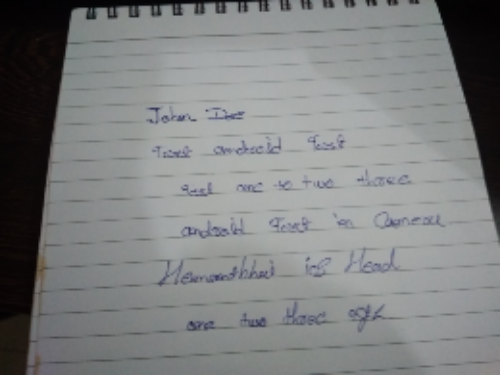 John Doe
Test android Test
test one to two three
android Test in Camera
Hemanthhai is Head
one two three